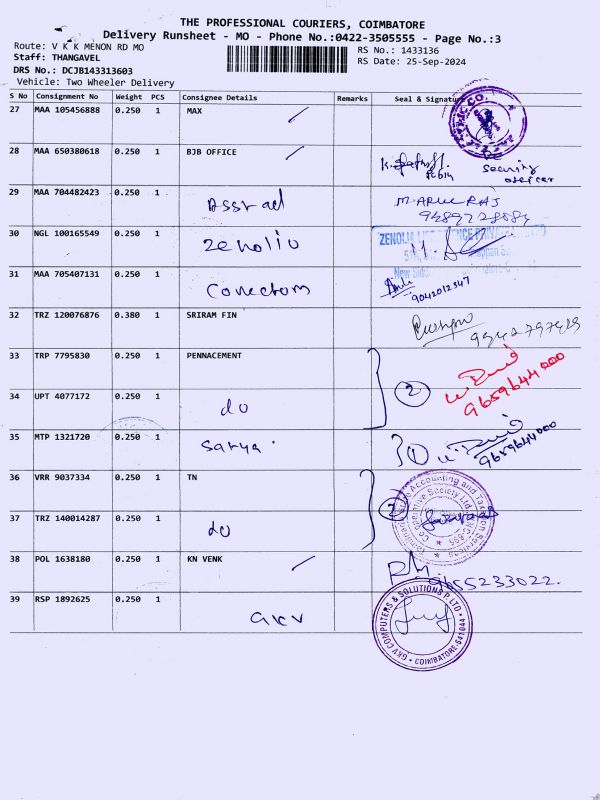 THE PROFESSIONAL COURIERS, COIMBATORE
Delivery Runsheet - MO - Phone No.:0422-3505555 - Page No.:3
Route: V K K MENON RD MO
RS No.: 1433136
Staff: THANGAVEL
RS Date: 25-Sep-2024
DRS No.: DCJB143313603
Vehicle: Two Wheeler Delivery
S No Consignment No Weight PCS Consignee Details Remarks Seal & Signature
27 MAA 105456888 0.250 1 MAX
28 MAA 650380618 0.250 1 BJB OFFICE
security
officer
29 MAA 704482423 0.250 1
30 NGL 100165549 0.250 1 zenoliu
31 MAA 705407131 0.250 1
9042012347
32 TRZ 120076876 0.380 1 SRIRAM FIN
33 TRP 7795830 0.250 1 PENNACEMENT
2
9659644000
34 UPT 4077172 0.250 1 do
35 MTP 1321720 0.250 1 Sarya
1
9659644000
36 VRR 9037334 0.250 1 TN
37 TRZ 140014287 0.250 1 do
38 POL 1638180 0.250 1 KN VENK
9655233022.
39 RSP 1892625 0.250 1 GKV
GKV COMPUTERS & SOLUTIONS P LTD
COIMBATORE-641044